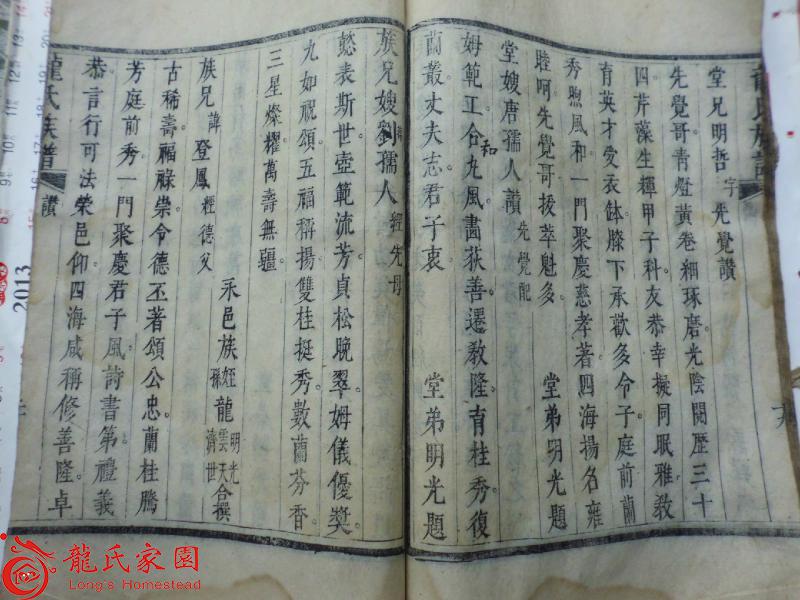 堂兄明哲字先覺讚
先覺哥青燈黃卷細琢磨光陰閱歷三十
四芹藻生輝甲子科友恭幸擬同眠雅教
育英才受衣鉢膝下承歡多令子庭前蘭
秀煦風和一門聚慶慈孝著四海揚名雍
睦呵先覺哥拔萃魁多 堂弟明光題
堂嫂唐孺人讚先覺配
姆範工合和丸風畵荻善遷教隆育桂秀復
蘭叢丈夫志君子衷 堂弟明光題
族兄嫂劉孺人經先母
懿表斯世壺範流芳貞松晚翠姆儀優奬
九如祝頌五福稱揚雙桂挺秀數蘭芬香
三星燦耀萬壽無疆
永邑族姪孫龍明光雲天濟世合撰
族兄諱登鳳經德父
古稀壽福祿崇令德丕著頌公忠蘭桂騰
芳庭前秀一門聚慶君子風詩書第禮義
恭言行可法榮邑仰四海咸稱修善隆卓
龍氏族譜
讚
2013
龍氏家園
Long's Homestead